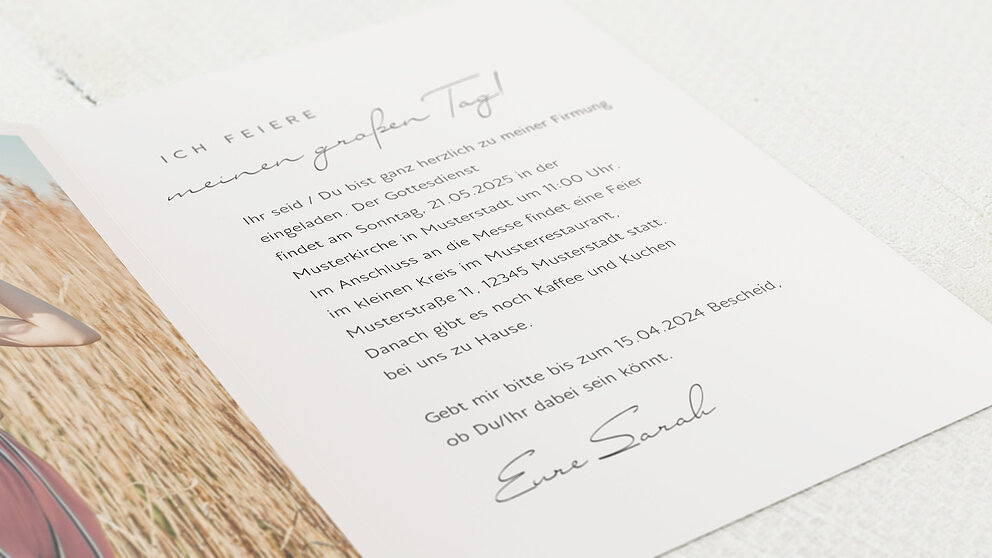 ICH FEIERE
meinen großen Tag!
Ihr seid / Du bist ganz herzlich zu meiner Firmung
eingeladen. Der Gottesdienst
findet am Sonntag, 21.05.2025 in der
Musterkirche in Musterstadt um 11:00 Uhr.
Im Anschluss an die Messe findet eine Feier
im kleinen Kreis im Musterrestaurant,
Musterstraße 11, 12345 Musterstadt statt.
Danach gibt es noch Kaffee und Kuchen
bei uns zu Hause.
Gebt mir bitte bis zum 15.04.2024 Bescheid,
ob Du/Ihr dabei sein könnt.
Eure Sarah